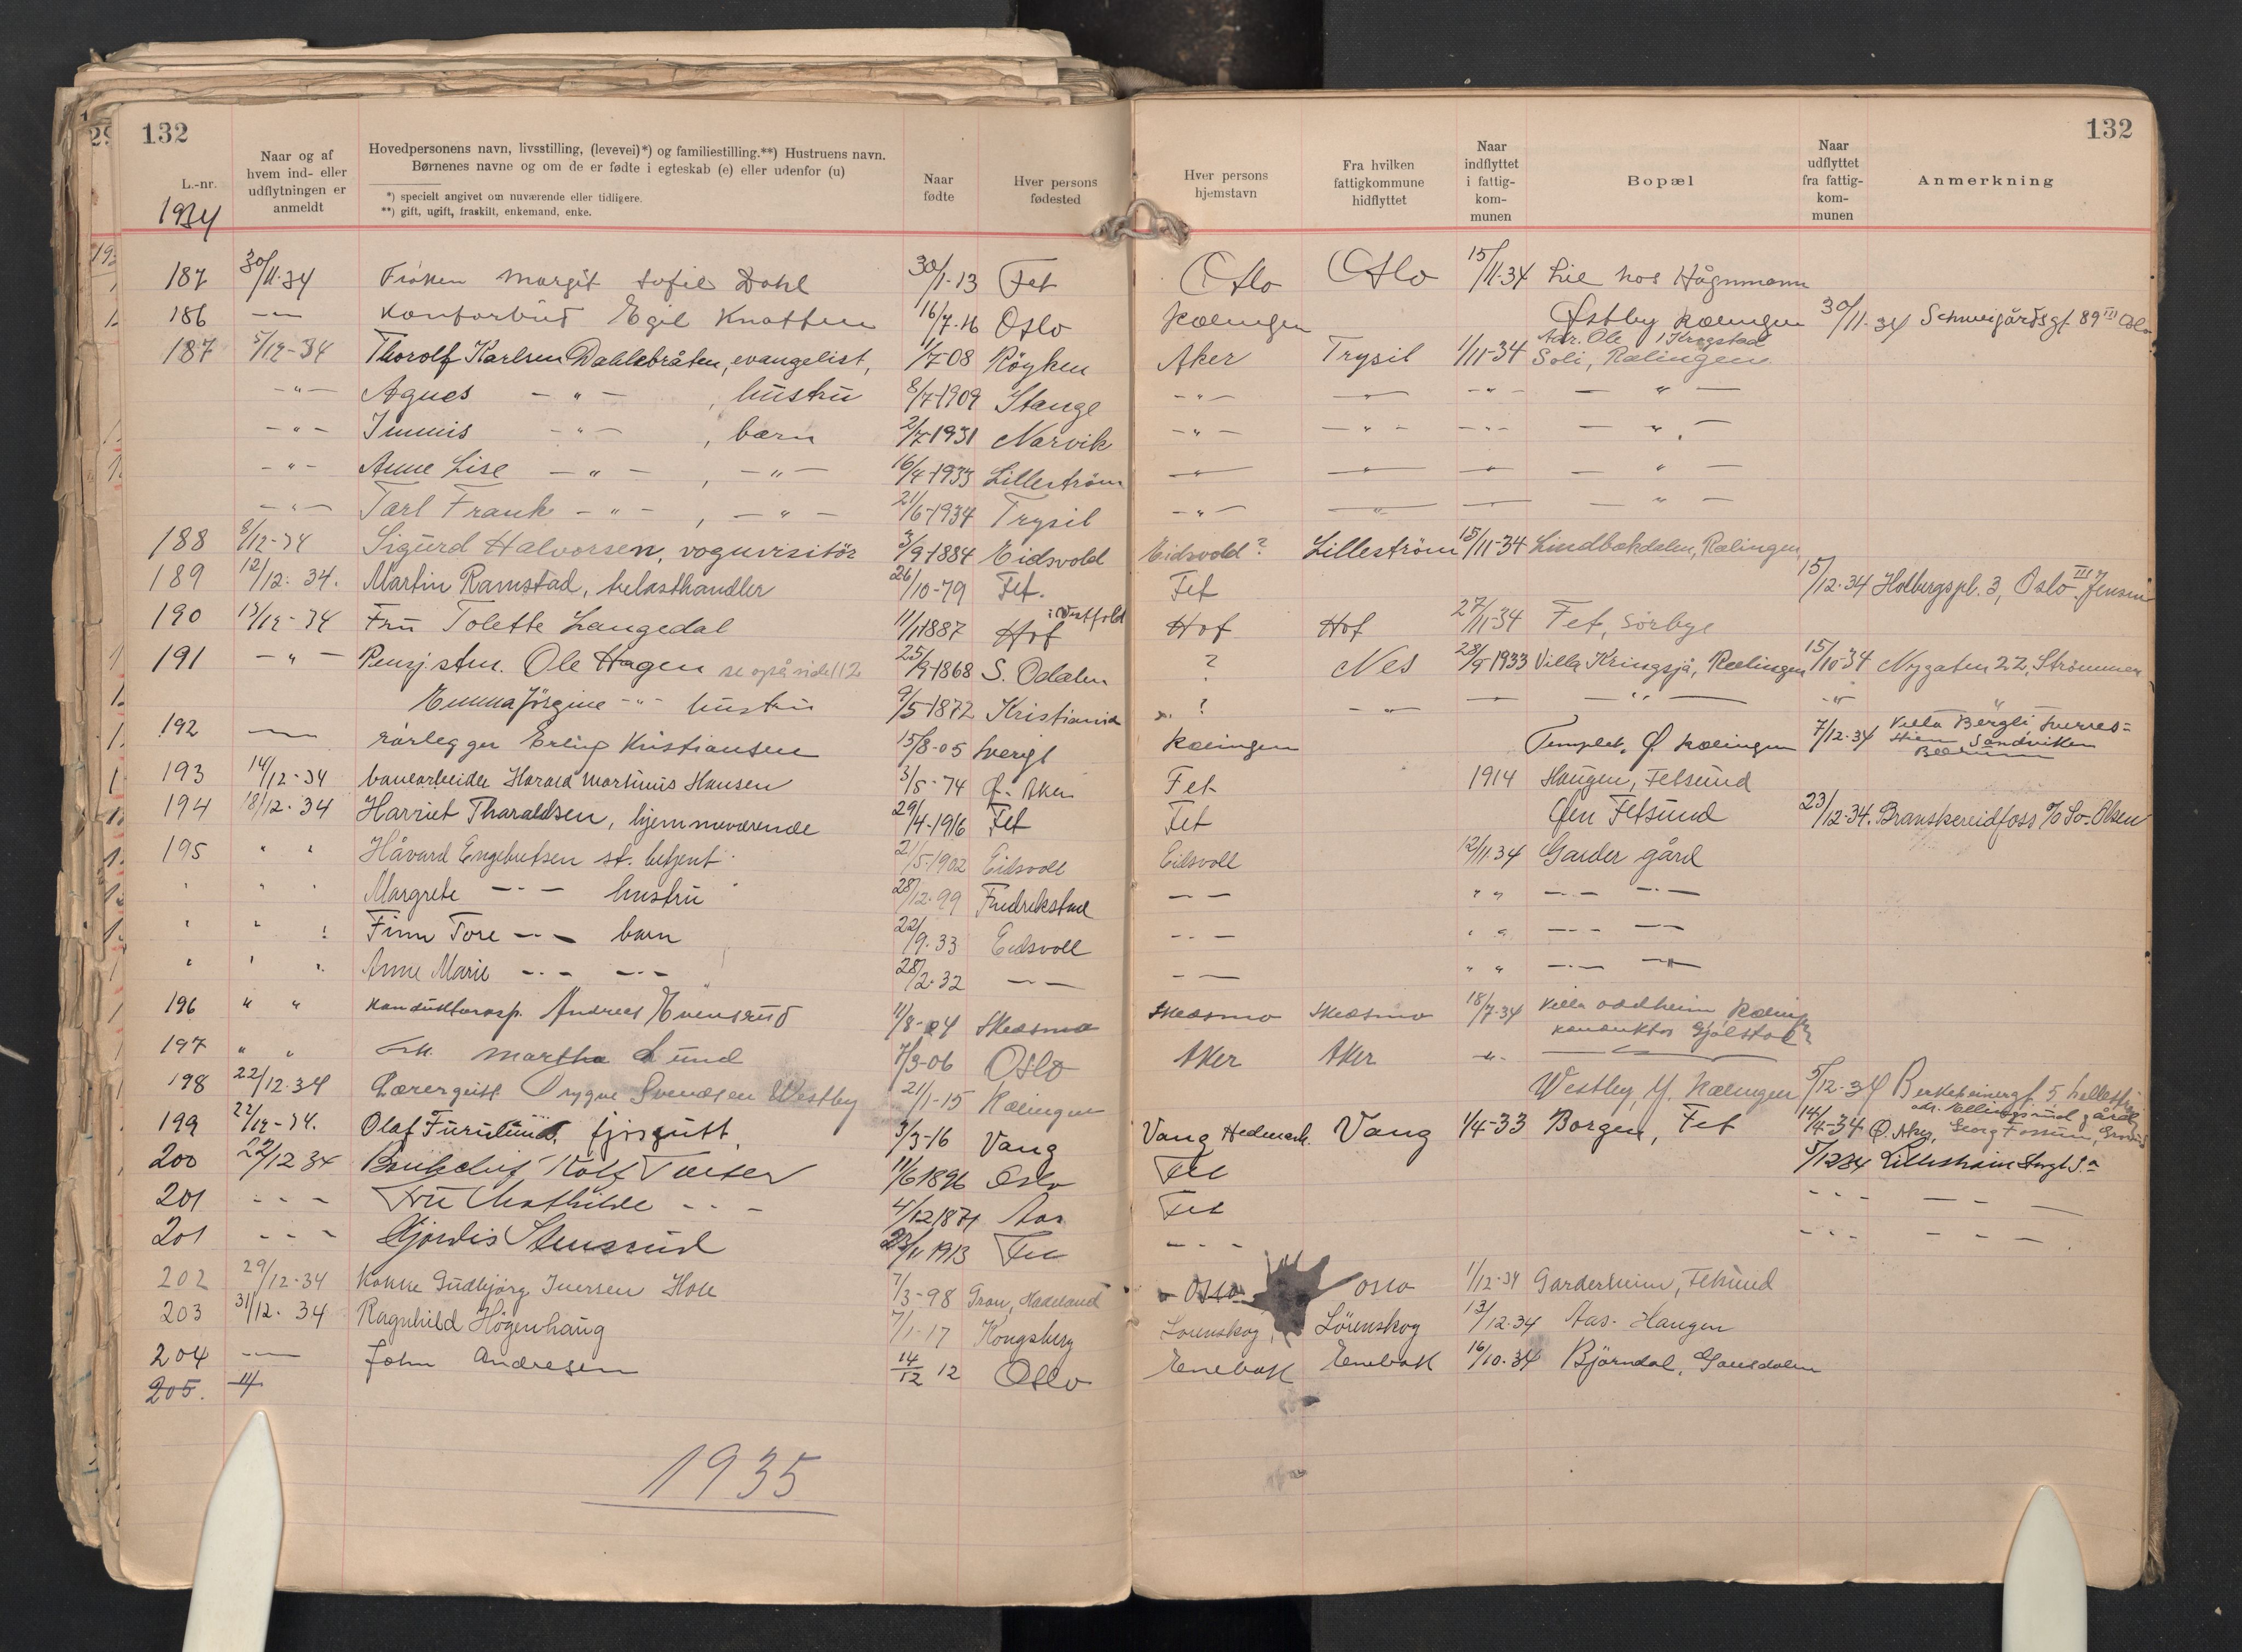 132
132
L.-nr.
Naar og af hvem ind- eller udflytningen er anmeldt
Hovedpersonens navn, livsstilling, (levevei)*) og familiestilling.**) Hustruens navn.
Børnenes navne og om de er fødte i egteskab (e) eller udenfor (u)
*) specielt angivet om nuværende eller tidligere.
**) gift, ugift, fraskilt, enkemand, enke.
Naar fødte
Hver persons fødested
Hver persons hjemstavn
Fra hvilken fattigkommune hidflyttet
Naar indflyttet i fattig-kom-munen
Bopæl
Naar udflyttet fra fattig-kom-munen
Anmerkning
1934
187 30/11-34 Frøken Margit Sofie Dahl 30/1-13 Fet Oslo Oslo 15/11-34 Lie hos Hågnmann
186 -„- Kontorbud Egil Knatten 16/7-16 Oslo Rælingen Østby Rælingen 30/11-34 Schweigårdsgt. 89 III Oslo
187 5/12-34 Thorolf Karlsen Dahlebråten, evangelist, 1/7-08 Röyken Aker Trysil 1/11-34 Adr. Ole Krogstad Soli, Rælingen
-„- Agnes -„- , hustru 8/7-1909 Stange -„- -„- -„- -„-
-„- Jimmis -„- , barn 2/7-1931 Narvik -„- -„- -„- -„-
-„- Anne Lise -„- , -„- 16/4-1933 Lilleström -„- -„- -„- -„-
-„- Tarl Frank -„- , -„- 21/6-1934 Trysil -„- -„- -„- -„-
188 8/12-34 Sigurd Halvorsen, vognvisitör 3/9-1884 Eidsvold Eidsvold? Lilleström 15/11-34 Lindbakdalen, Rælingen
189 12/12. 34. Martin Ramstad, trelasthandler 26/10-79 Fet. Fet 15/12-34 Holbergspl. 3, Oslo III Jensen
190 13/12-34 Fru Tolette Langedal 11/1 1887 Hof i Vestfold Hof Hof 27/11-34 Fet, Sörbye
191 -„- Pensj. stm. Ole Hagen se også side 112 25/9-1868 S. Odalen ? Nes 28/9-1933 Villa Kringsjå, Rælingen 15/10-34 Nygaten 22, Strömmen
Emma Jörgine -„- hustru 9/5-1872 Kristiania ? -„- - -„- -„- „
192 -„- rørlegger Erling Kristiansen 15/8-05 Sverige Rælingen Templet, Ø. Rælingen 7/12-34 Villa Bergli Sandviken Bærum
193 14/12-34 banearbeider Harald Martinius Hansen 3/5-74 Ø. Aker Fet 1914 Haugen, Fetsund
194 18/12-34 Harriet Tharaldsen, hjemmeværende 29/4-1916 Fet Fet Øen Fetsund 23/12-34. Branskereidfoss c/o So. Olsen
195 „ „ Håvard Engebretsen st. betjent 21/5-1902 Eidsvoll Eidsvoll 12/11-34 Garder gård
„ „ „ Margrete -„- hustru 28/12-99 Fredrikstad -„- „ „ -„- -„-
„ „ „ Finn Tore -„- barn 22/9-33 Eidsvoll -„- „ „ -„- -„-
„ „ „ Anne Marie -„- -„- 28/2-32 -„- -„- „ „ -„- -„-
196 „ „ Konduktørasp. Andreas Evensrud 11/8-04 Skedsmo Skedsmo Skedsmo 18/7-34 Villa Oddheim konduktør Gjølstad
197 „ „ Frk. Martha Lund 7/3-06 Oslo Aker Aker -„-
198 22/12-34 Lærergutt Trygve Svendsen Westby 21/1-15 Rælingen Westby, Y. Rælingen 5/12-34
199 22/12-34. Olaf Furulund, fjösgutt, 3/3-16 Vang Vang Hedmark. Vang 1/4-33 Borgen, Fet 14/4-34 Ø. Aker, Georg Fossum, Grorud
200 22/12 34 Rolf 11/6 1896 Oslo Fet 5/12 34 Lilleström
201 - - - Fru Mathilde - - - 4/12 1871 Aas Fet - - - - - -
201 - - - Hjørdis Stensrud 23/11 1913 Fet - - - - - - - - -
202 29/12-34 Kokke Gudbjörg Iversen Hole 7/3-98 Gran, Hadeland Oslo Oslo 1/12-34 Garderheim, Fetsund
203 31/12. 34 Ragnhild Högenhaug 7/1-17 Kongsberg Lörenskog, Lörenskog 13/12-34 Aas-Haugen
204 -„- John Andresen 14/12 12 Oslo Enebak Enebak 16/10-34 Björndal, Gansdalen
205. 11
1935